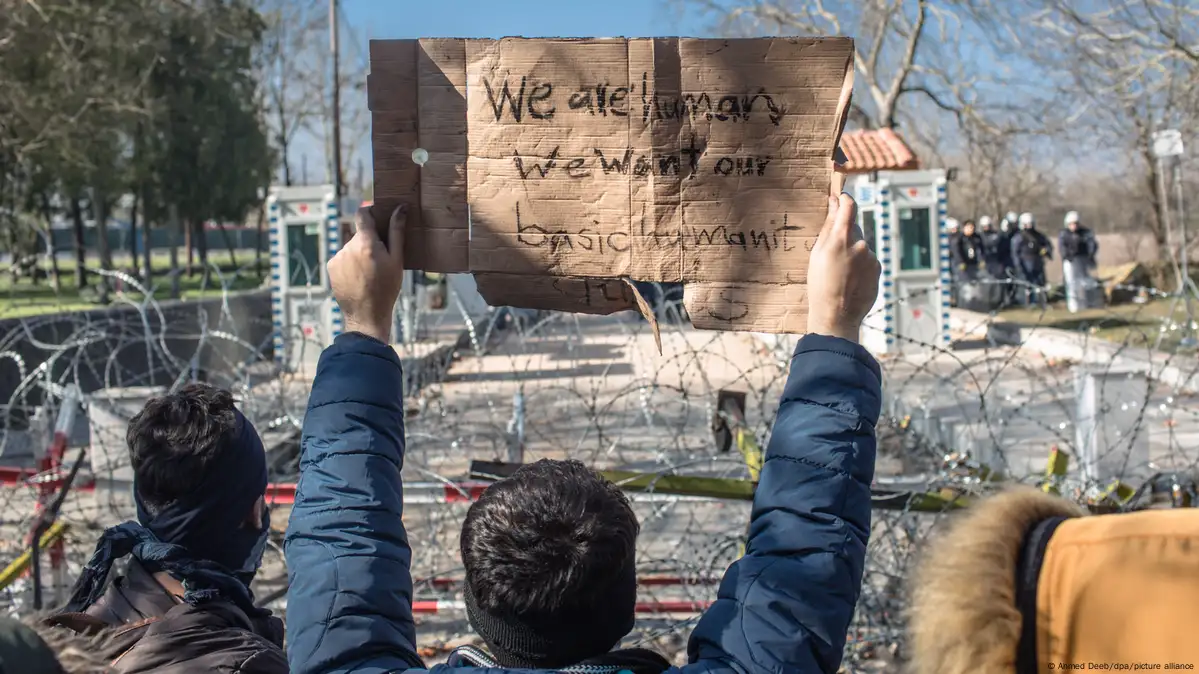 We are human
we want our
basic humanit
© Ahmed Deeb/dpa/picture alliance